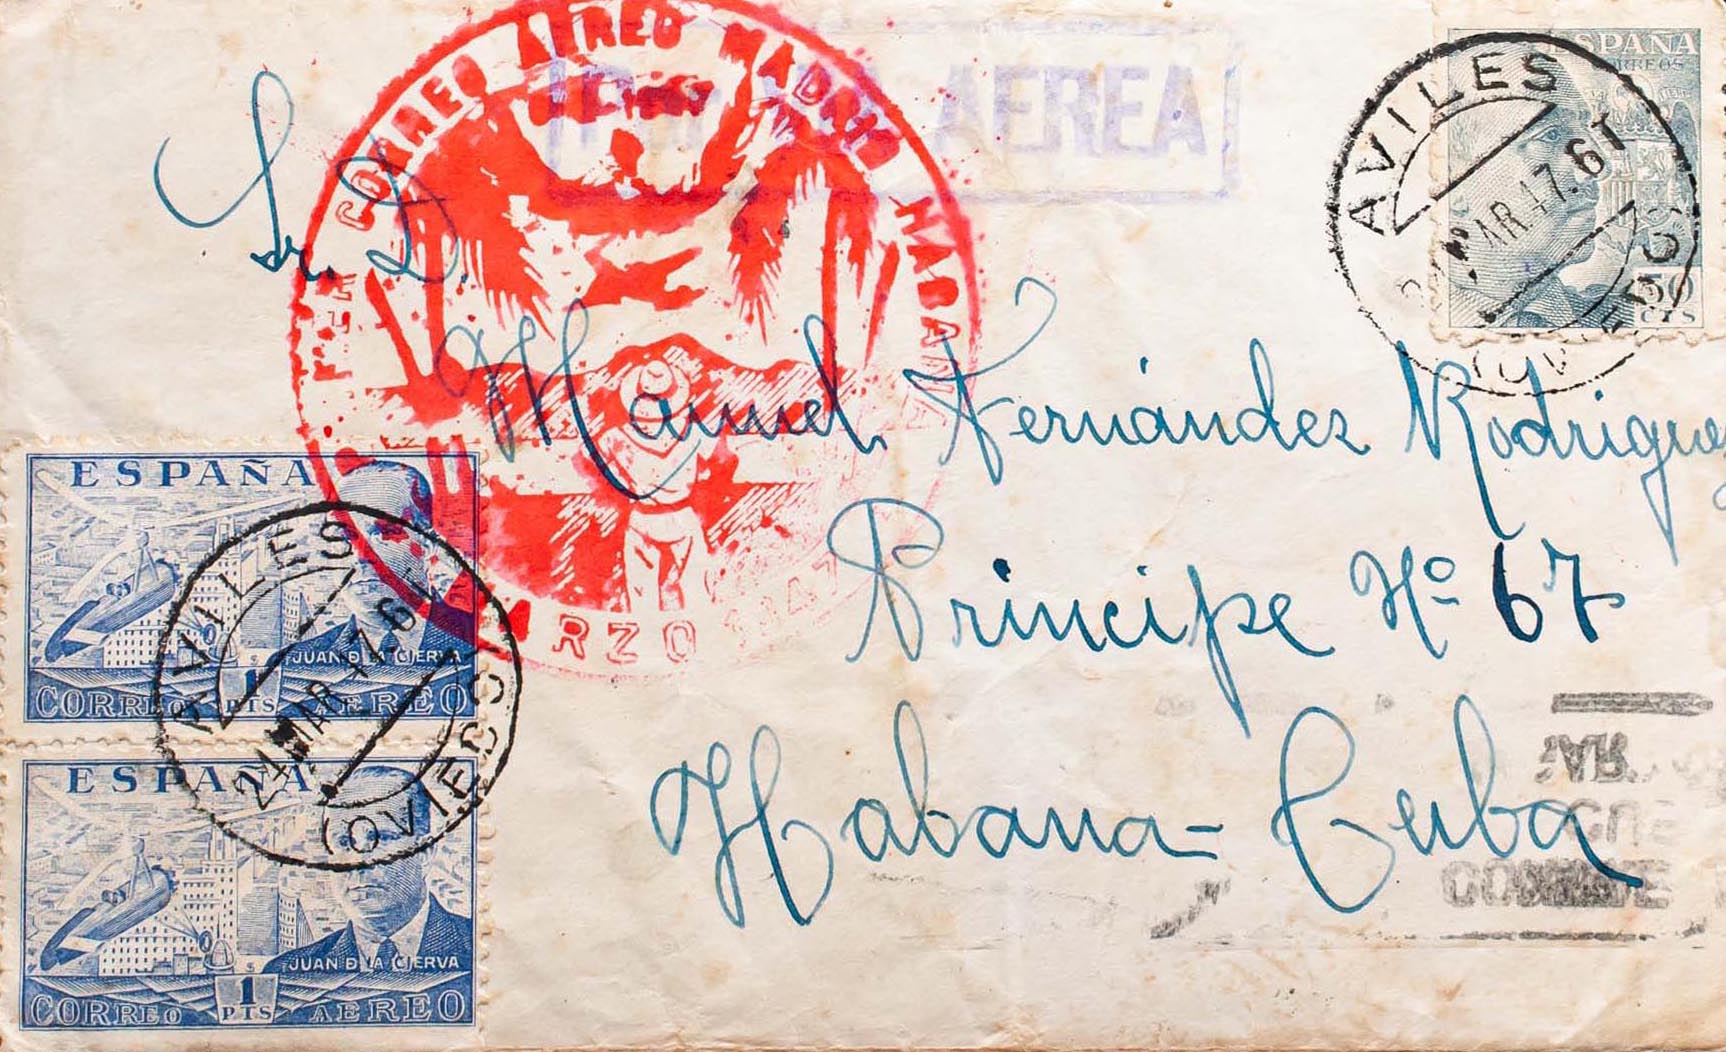 1ER CORREO AEREO MADRID HABANA
MARZO 1947
Por VIA AEREA
ESPAÑA
CORREOS
50
CTS
AVILES
MAR 47.6T
(OVIEDO)
Sr. D.
Manuel Fernández Rodriguez
Principe Nº 67
Habana - Cuba
ESPAÑA
JUAN DE LA CIERVA
CORREO 1 PTS AEREO
AVILES
24 MAR 47.6
(OVIEDO)
ESPAÑA
JUAN DE LA CIERVA
CORREO 1 PTS AEREO